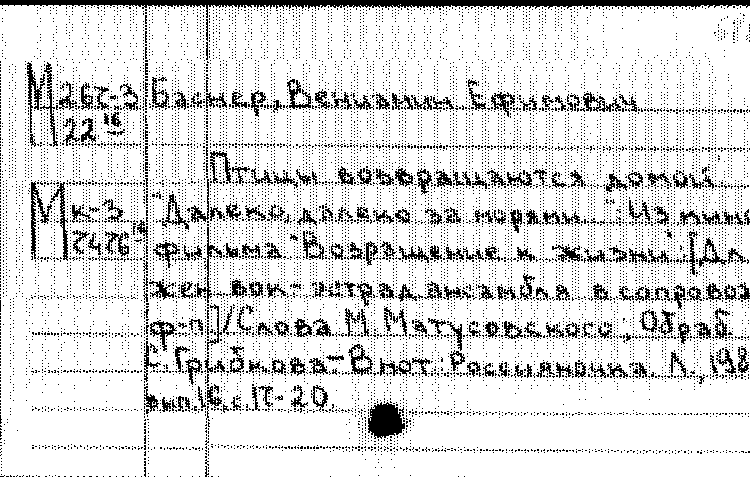 М 26г-3 Баснер, Вениамин Ефимович
22 16
Птицы возвращаются домой
М к-3 "Далеко, далеко за морями...": Из кино
фильма "Возвращение к жизни": [Дл.
жен. вок-эстрад. ансамбля в сопровож
ф-п.] / Слова М. Матусовского; Обраб.
С. Грибкова.- В нот.: Россияночка. Л., 198
вып.16, с.17-20.